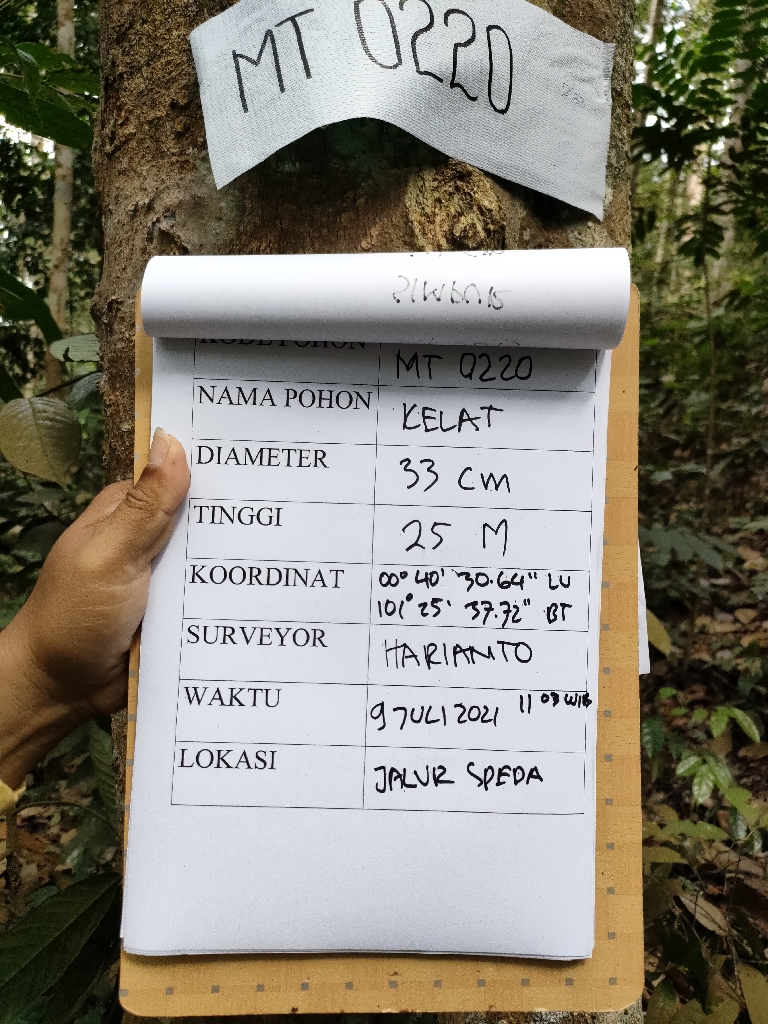 MT 0220
KODE POHON MT 0220
NAMA POHON KELAT
DIAMETER 33 cm
TINGGI 25 M
KOORDINAT 00° 40' 30.64" LU
101° 25' 37.72" BT
SURVEYOR HARIANTO
WAKTU 9 JULI 2021 11 03 WIB
LOKASI JALUR SPEDA